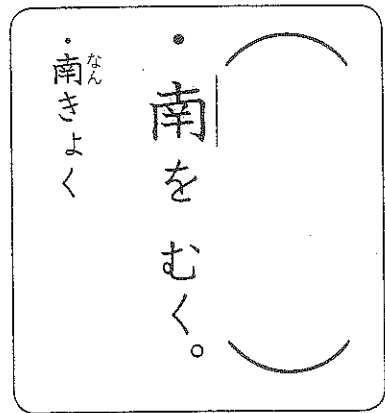 （　）
・南を むく。
・南きょく
なん